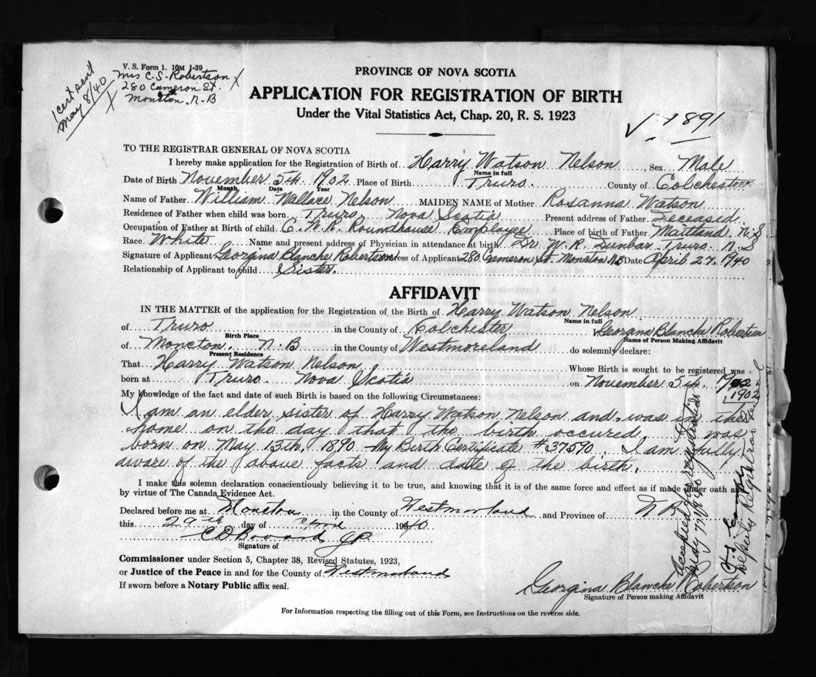 V. S. Form 1. 10M 1-39
Mrs C. S. Robertson X
280 Cameron St.
Moncton. N-B
1 cert sent
May 8/40
X
PROVINCE OF NOVA SCOTIA
APPLICATION FOR REGISTRATION OF BIRTH
Under the Vital Statistics Act, Chap. 20, R. S. 1923
√ 1891
TO THE REGISTRAR GENERAL OF NOVA SCOTIA
I hereby make application for the Registration of Birth of Harry Watson Nelson, Sex Male
Name in full
Date of Birth November 5th. 1902 Place of Birth Truro. County of Colchester
Month Day Year
Name of Father William Wallace Nelson MAIDEN NAME of Mother Rosanna Watson
Residence of Father when child was born Truro, Nova Scotia Present address of Father Deceased.
Occupation of Father at Birth of child C. N. R. Roundhouse Employee Place of birth of Father Maitland N.S
Race White Name and present address of Physician in attendance at birth Dr. W. R. Dunbar. Truro. N.S
Signature of Applicant Georgina Blanche Robertson ess of Applicant 280 Cameron St. Moncton NB Date April 27. 1940
Relationship of Applicant to child Sister.
AFFIDAVIT
IN THE MATTER of the application for the Registration of the Birth of Harry Watson Nelson
Name in full
of Truro in the County of Colchester Georgina Blanche Robertson
Birth Place Name of Person Making Affidavit
of Moncton. N.B in the County of Westmoreland do solemnly declare:
Present Residence
That Harry Watson Nelson Whose Birth is sought to be registered was
born at Truro. Nova Scotia on November 5th. 1902
1902
My knowledge of the fact and date of such Birth is based on the following Circumstances:
I am an elder sister of Harry Watson Nelson and was in the
home on the day that the birth occured. I was
born on May 13th. 1890. My Birth Certificate # 37590. I am fully
aware of the above facts and date of the birth.
I make this solemn declaration conscientiously believing it to be true, and knowing that it is of the same force and effect as if made under oath and
by virtue of The Canada Evidence Act.
Declared before me at Moncton in the County of Westmorland and Province of N B
this 29th day of April 1940
Signature of
Commissioner under Section 5, Chapter 38, Revised Statutes, 1923,
or Justice of the Peace in and for the County of Westmorland
If sworn before a Notary Public affix seal.
Georgina Blanche Robertson
Signature of Person making Affidavit
Accepted for registration
May 7/1940
Deputy Registrar General
For Information respecting the filling out of this Form, see Instructions on the reverse side.